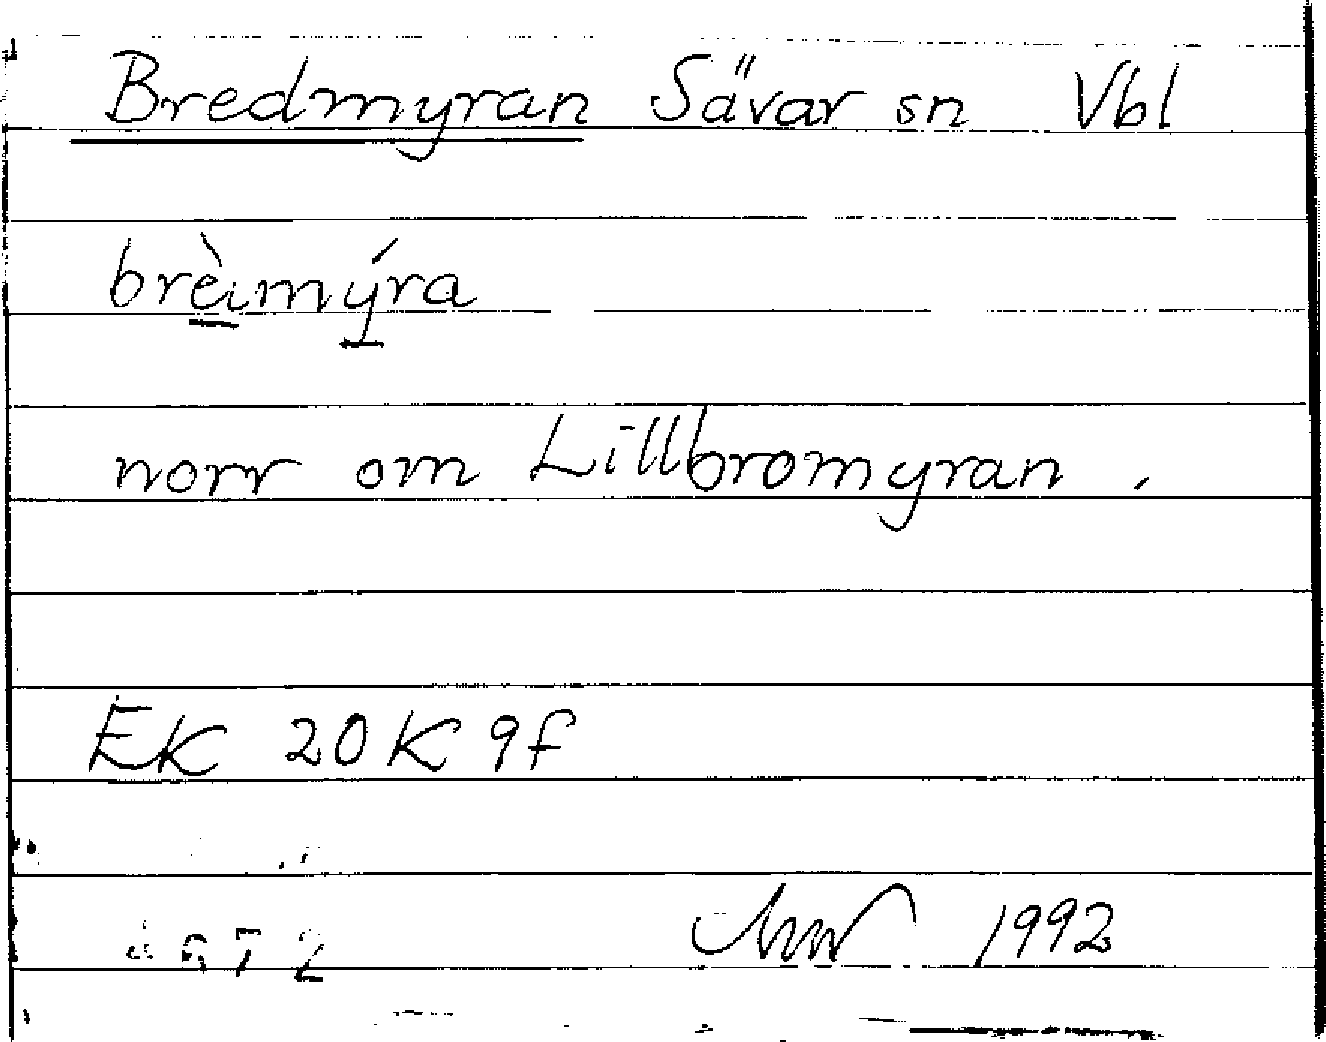 Bredmyran Sävar sn Vbl
brèımýra
norr om Lillbromyran .
EK 20K 9f
1992